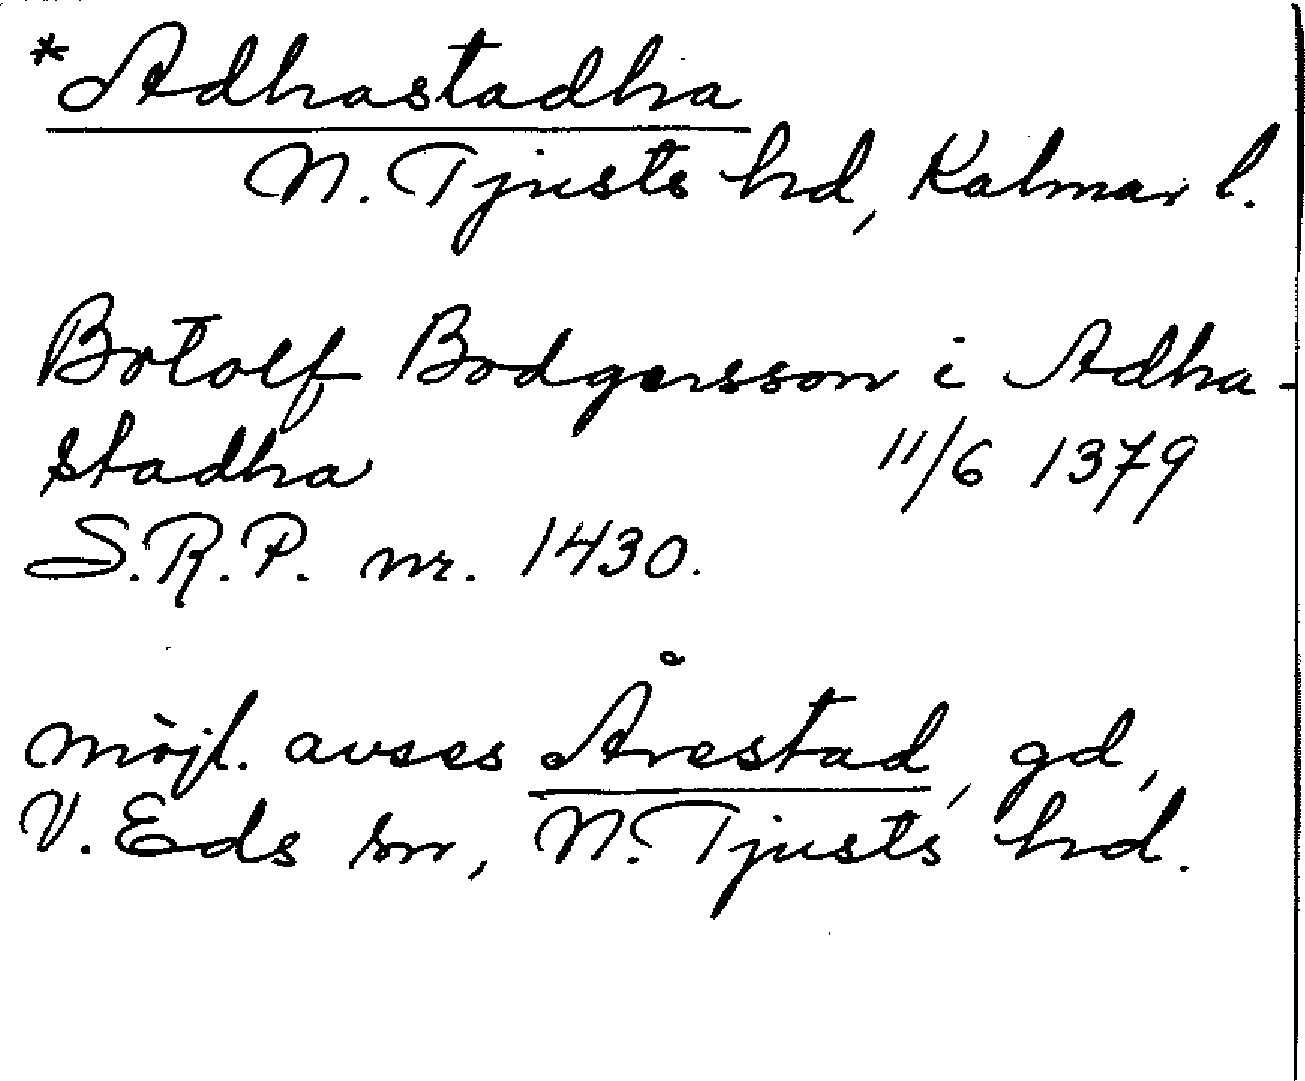 *Adhastadha
N. Tjusts hd, Kalmar l.
Botolf Bodgersson i Adha-
stadha 11/6 1379
S.R.P. nr. 1430.
möjl. avses Årestad, gd,
V. Eds sn, N. Tjusts hd.